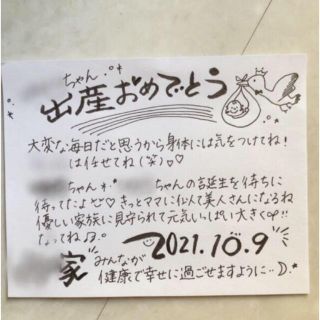 ちゃん
出産おめでとう
大変な毎日だと思うから身体には気をつけてね!
は任せてね(笑)♡♡
ちゃん ちゃんの誕生を待ちに
待ってたよ♡きっとママに似て美人さんになるね
優しい家族に見守られて元気いっぱい大きく
なってね♪
2021.10.9
家 みんなが
健康で幸せに過ごせますように··